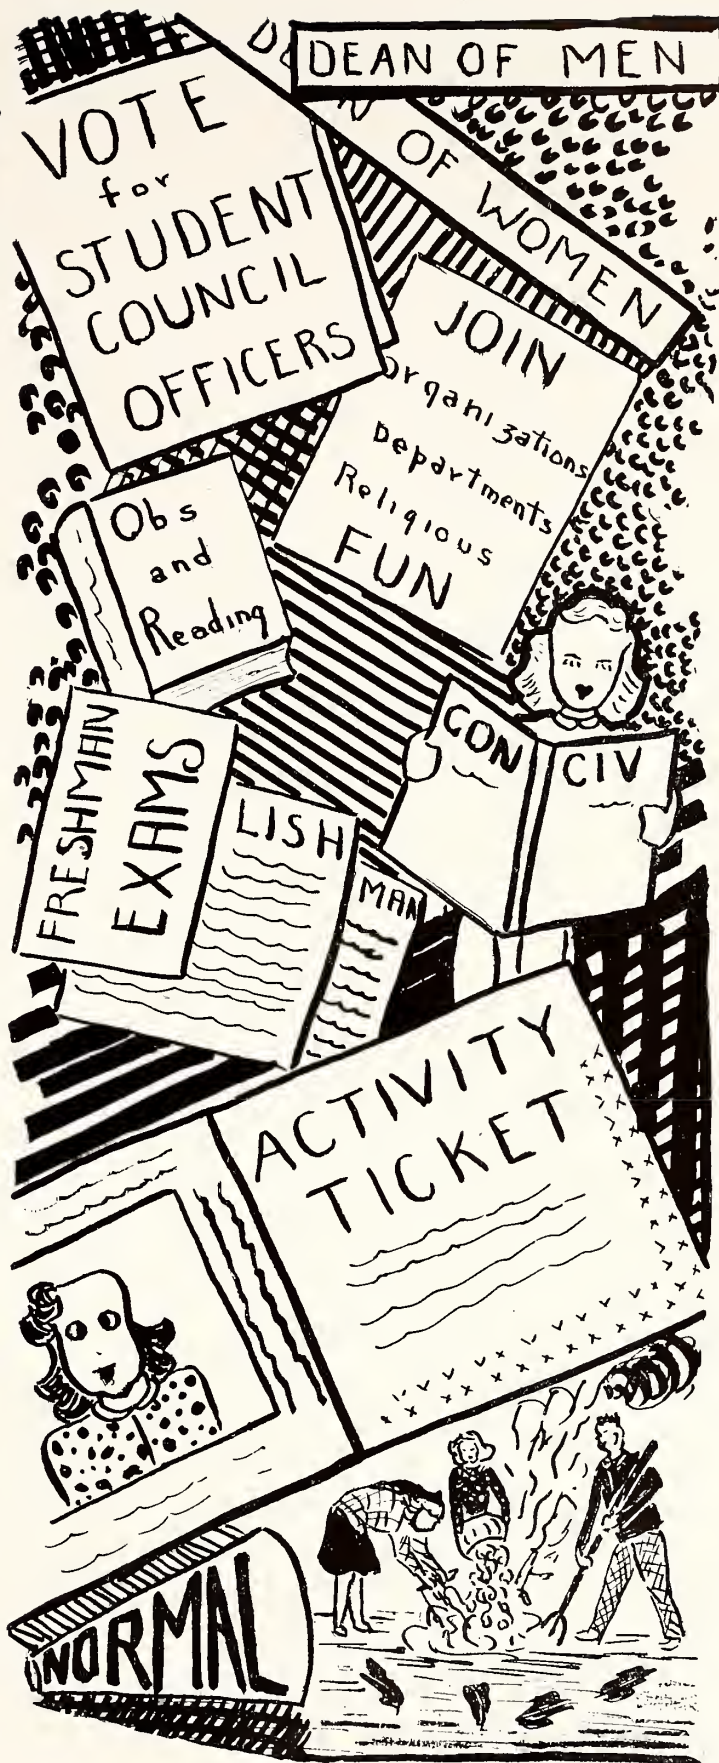 DEAN OF MEN
OF WOMEN
VOTE
for
STUDENT
COUNCIL
OFFICERS
JOIN
Organizations
Departments
Religious
FUN
Obs
and
Reading
CON CIV
FRESHMAN
EXAMS
LISH
MAN
ACTIVITY
TICKET
NORMAL